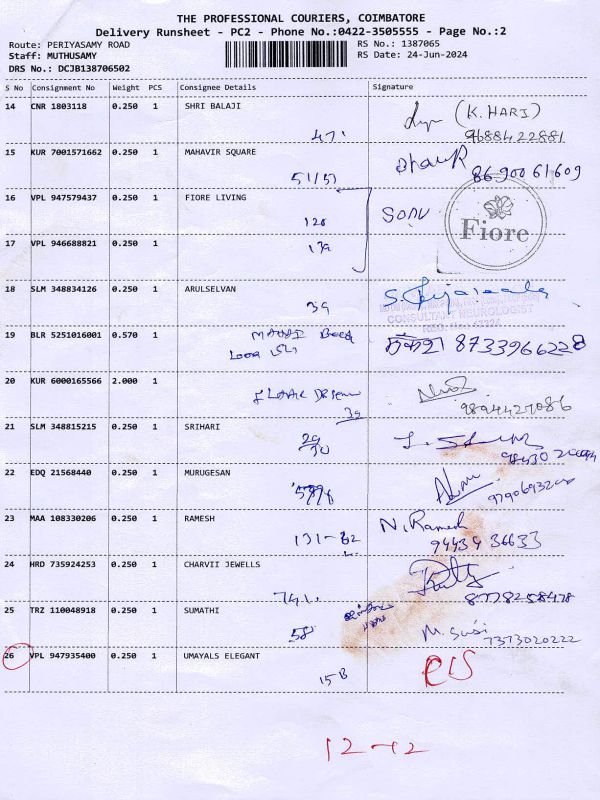 THE PROFESSIONAL COURIERS, COIMBATORE
Delivery Runsheet - PC2 - Phone No.:0422-3505555 - Page No.:2
Route: PERIYASAMY ROAD RS No.: 1387065
Staff: MUTHUSAMY RS Date: 24-Jun-2024
DRS No.: DCJB138706502
S No Consignment No Weight PCS Consignee Details Signature
14 CNR 1803118 0.250 1 SHRI BALAJI (K.HARI)
47. 9688422881
15 KUR 7001571662 0.250 1 MAHAVIR SQUARE
51/51 8690061609
16 VPL 947579437 0.250 1 FIORE LIVING SONU
128 Fiore
17 VPL 946688821 0.250 1
139
18 SLM 348834126 0.250 1 ARULSELVAN
39 CONSULTANT NEUROLOGIST
19 BLR 5251016001 0.570 1 8733966228
20 KUR 6000165566 2.000 1
39 9894427086
21 SLM 348815215 0.250 1 SRIHARI
29
30
22 EDQ 21568440 0.250 1 MURUGESAN
23 MAA 108330206 0.250 1 RAMESH N. Ramesh
131-62 94434 36633
24 HRD 735924253 0.250 1 CHARVII JEWELLS
741. 8778258478
25 TRZ 110048918 0.250 1 SUMATHI
58 M. Susi 7373020222
26 VPL 947935400 0.250 1 UMAYALS ELEGANT
15B
12-12